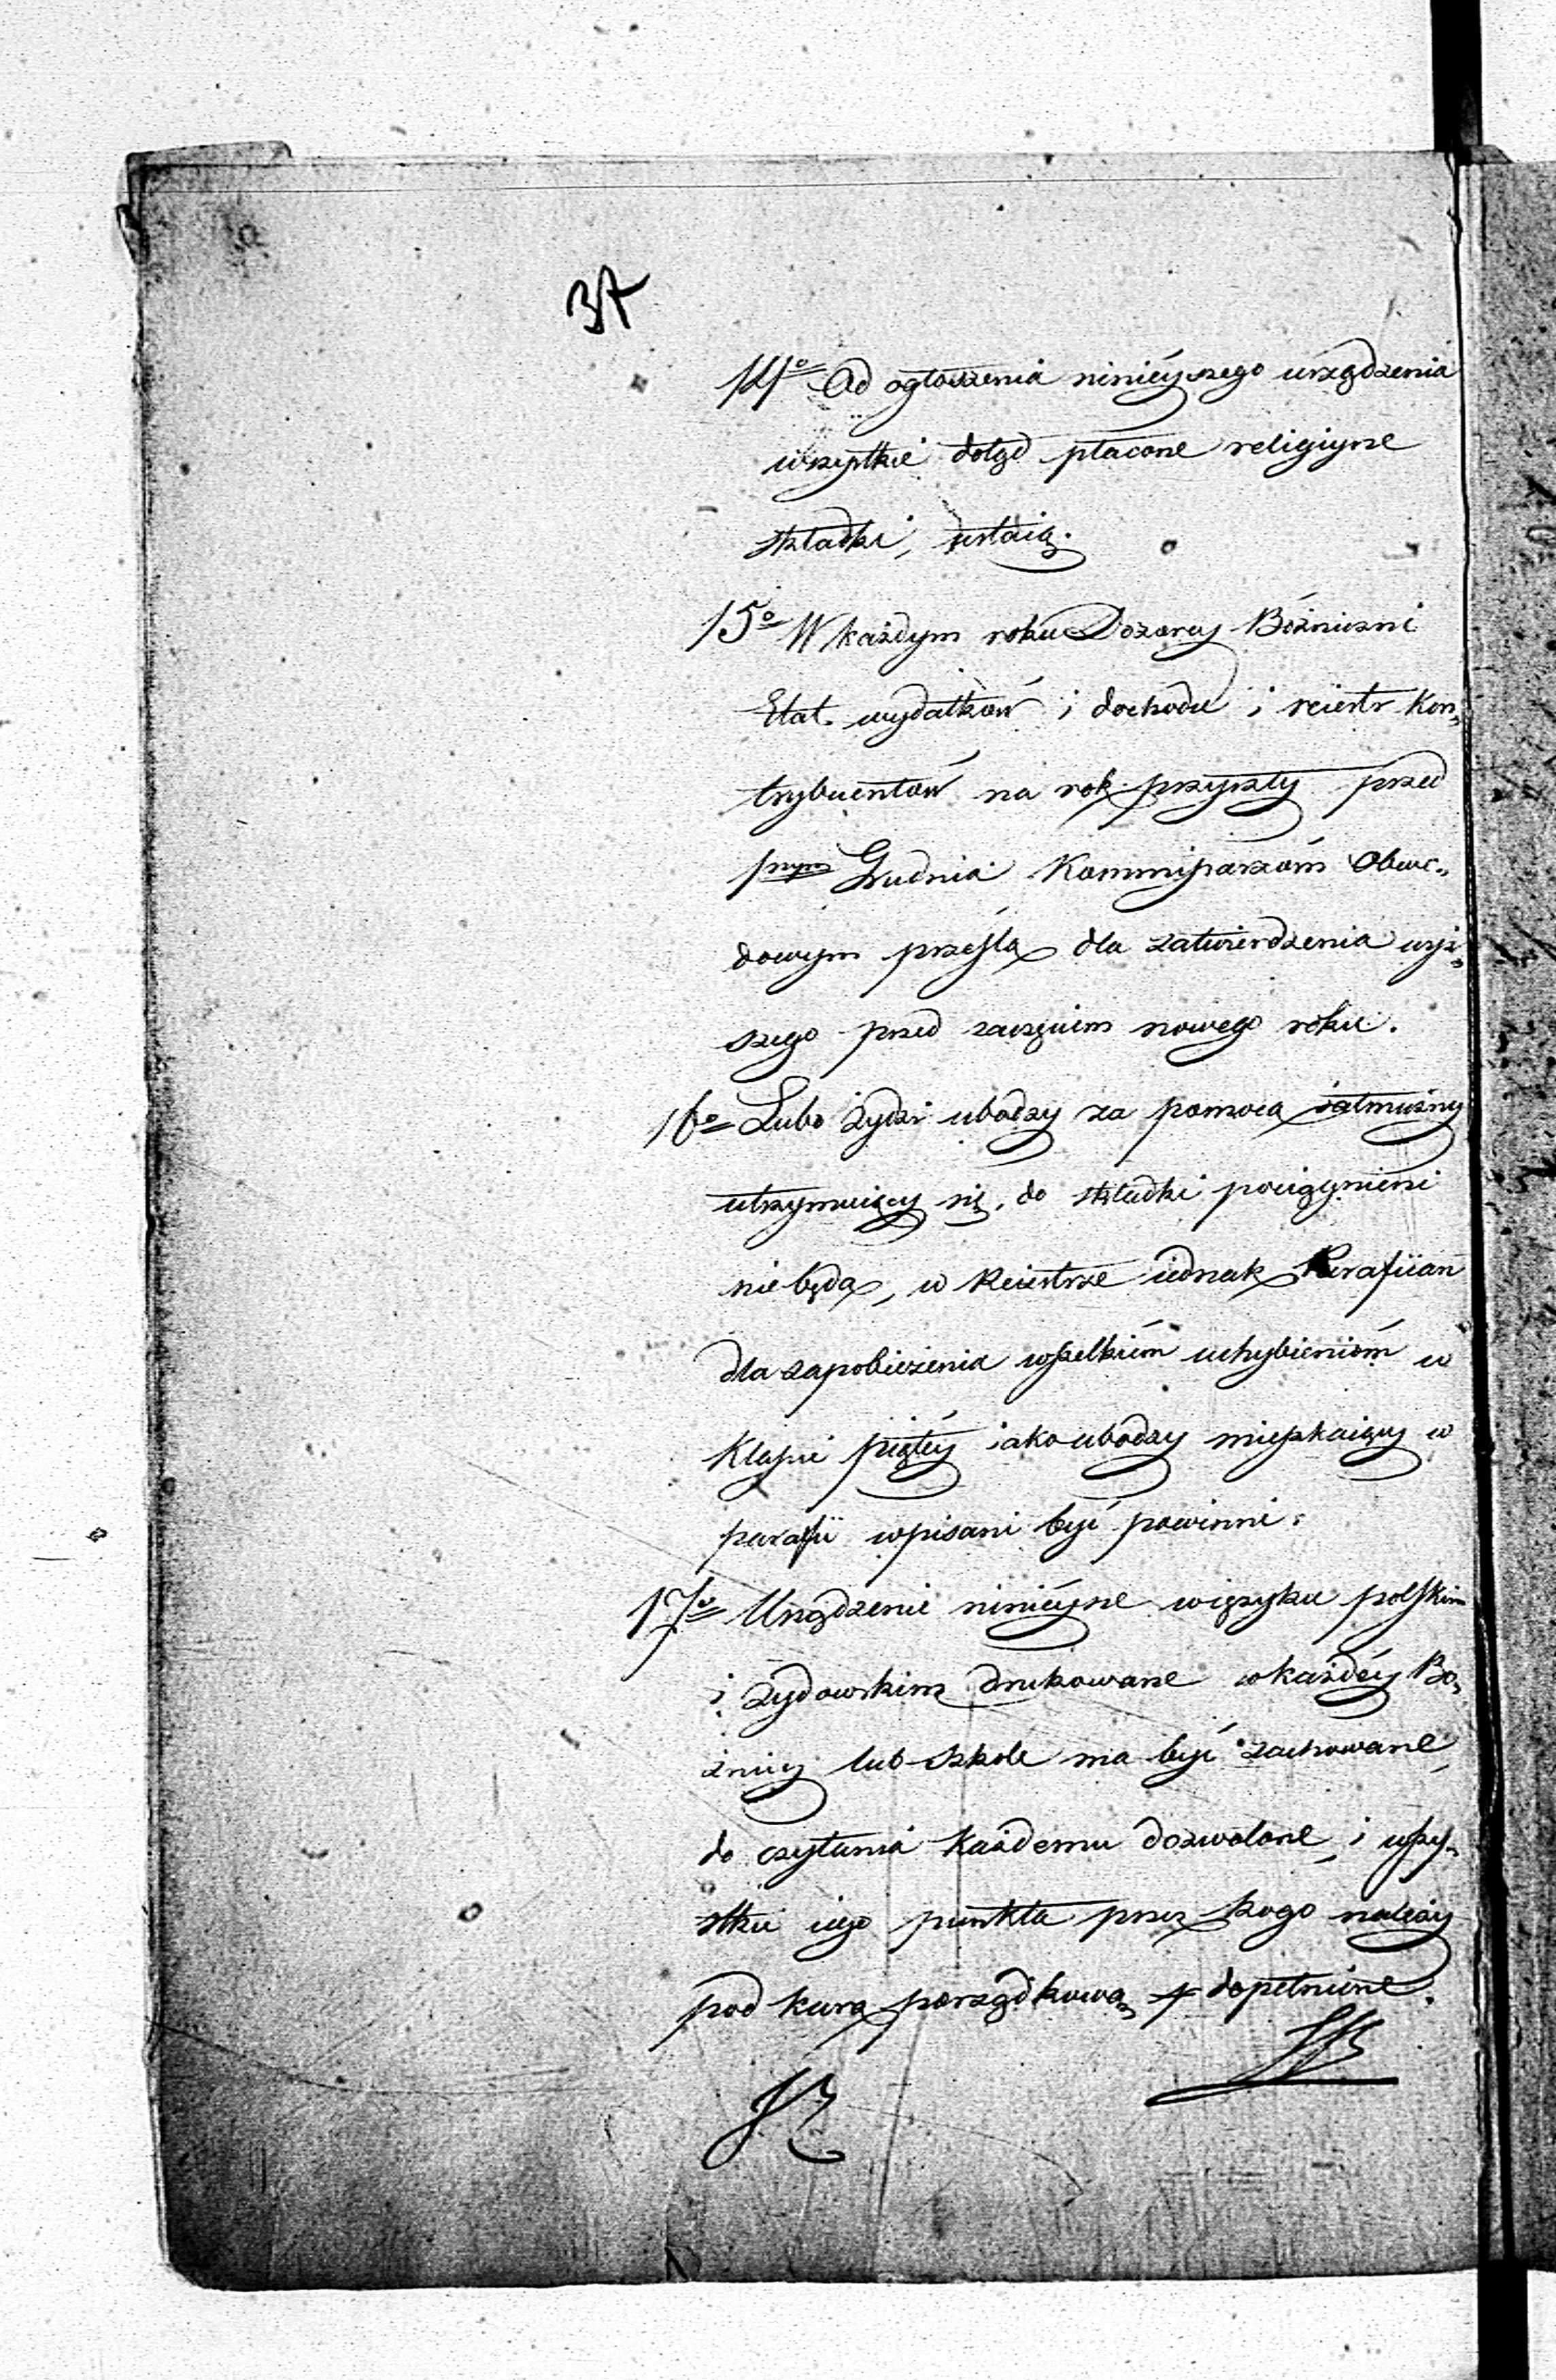 37
14o Od ogłoszenia ninieyszego urządzenia
wszystkie dotąd płacone religiyne
składki, ustaią.
15o W każdym roku Dozorcy Bóżniczni
Etat wydatków i dochodu i reiestr Kon„
trybuentów na rok przyszły przed
1nym Grudnia Kommissarzom Obwo„
dowym prześlą dla zatwierdzenia wyż„
szego przed zaczęciem nowego roku.
16o Lubo żydzi ubodzy za pomocą iałmużny
utrzymuiący się, do składki pociągnieni
nie będą, w Reiestrze iednak Parafiian
dla zapobieżenia wszelkim uchybieniom w
Klassie piątéy iako ubodzy mieszkaiący w
parafii wpisani być powinni.
17o Urządzenie ninieysze w ięzyku polskim
i żydowskim drukowane w każdéy Bo„
żnicy lub szkole ma być zachowane,
do czytania każdemu dozwolone, i wszy„
stkie iego punkta przez kogo należy
pod karą porządkową dopełnione.